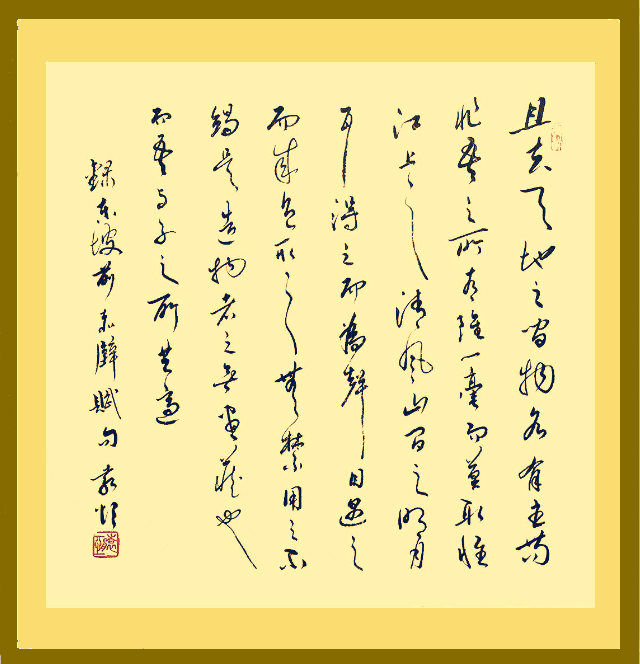 且夫天地之間物各有主苟
非吾之所有雖一毫而莫取惟
江上之清風山間之明月
耳得之而為聲目遇之
而成色取之無禁用之不
竭是造物者之無盡藏也
而吾与子之所共適
錄東坡前赤壁賦句